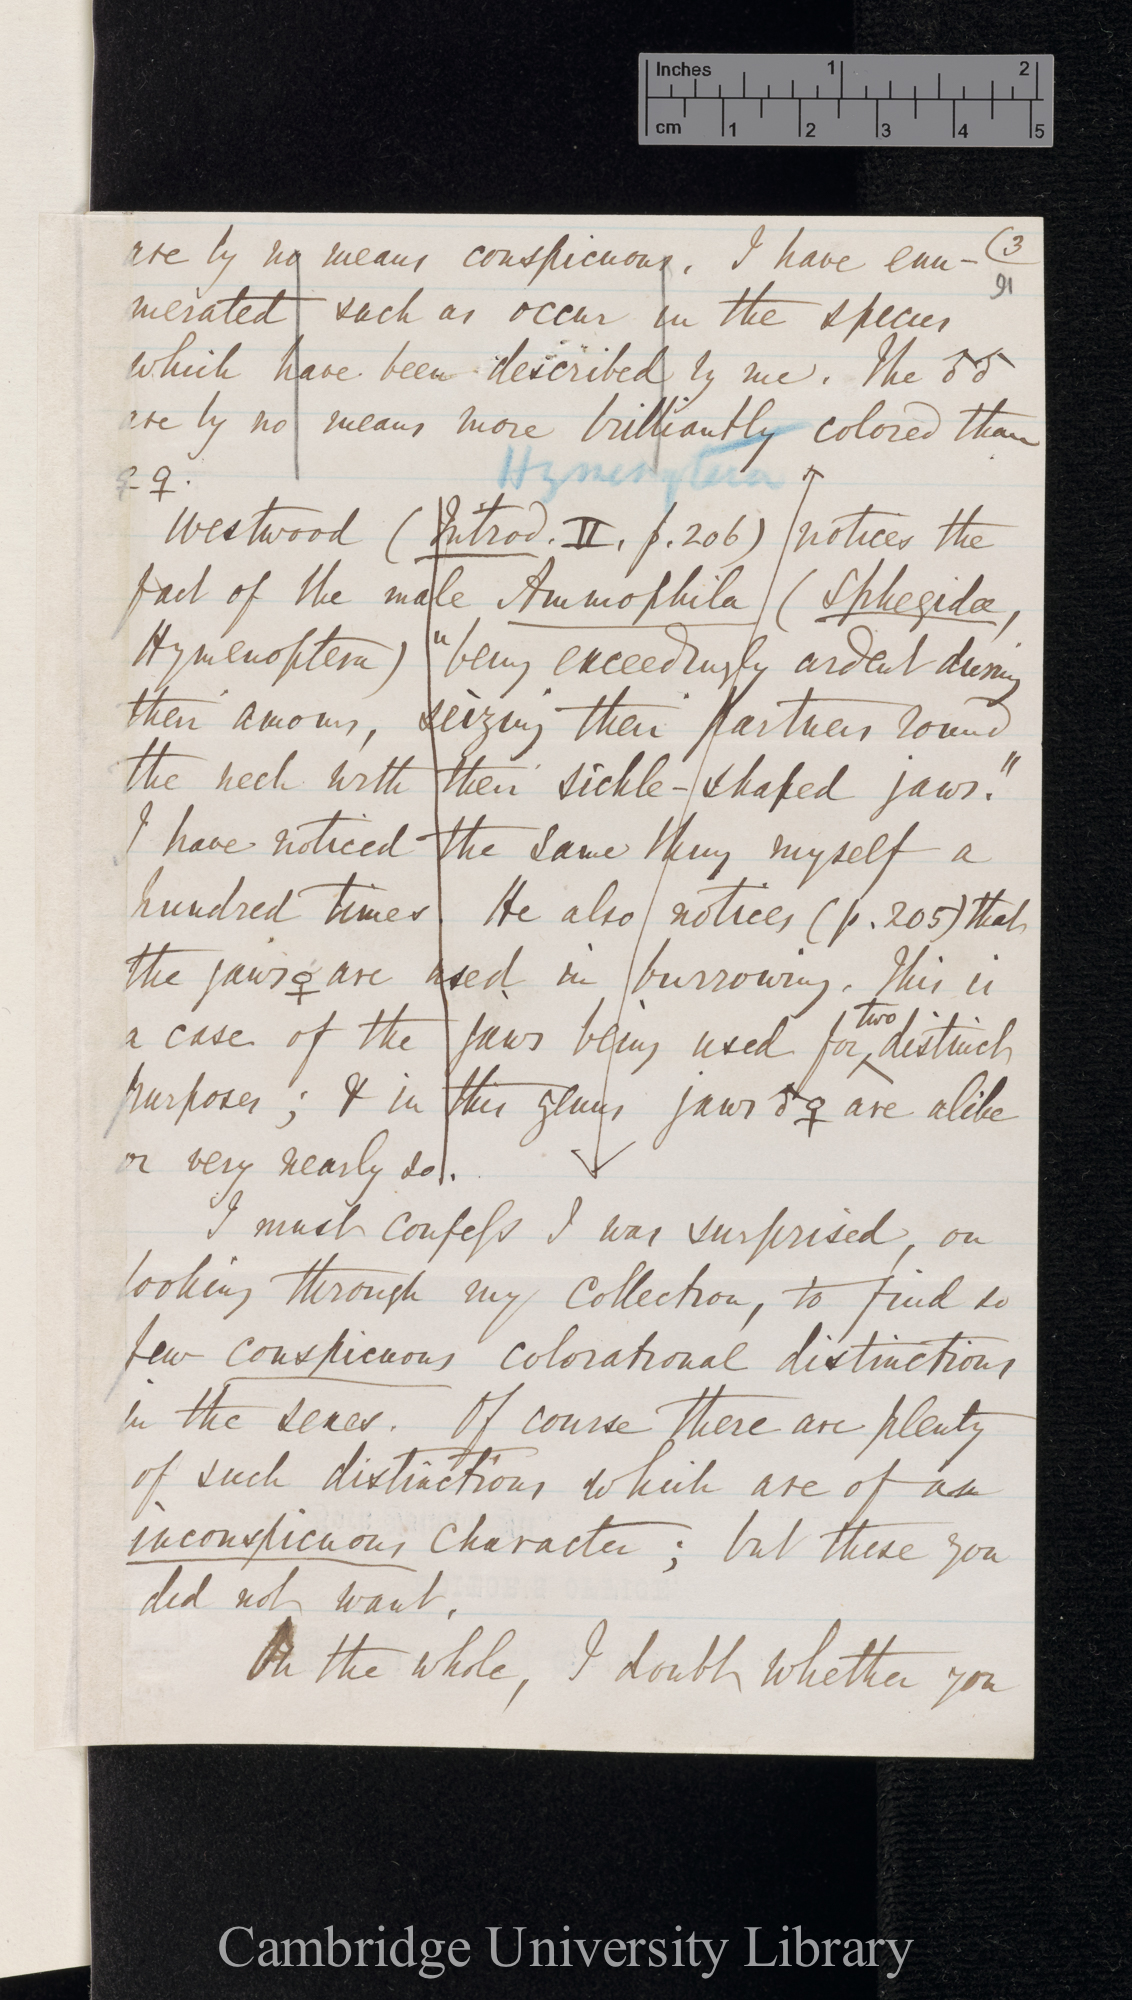 Inches 1 2
cm 1 2 3 4 5
(3
91
are by no means conspicuous. I have enu-
merated such as occur in the species
which have been described by me. The ♂♂
are by no means more brilliantly colored than
♀♀.
Hymenoptera
Westwood (Introd. II, p. 206) notices the
fact of the male Ammophila (Sphegidæ,
Hymenoptera) "being exceedingly ardent during
their amours, seizing their partners round
the neck with their sickle-shaped jaws."
I have noticed the same thing myself a
hundred times. He also notices (p. 205) that
the jaws ♀ are used in burrowing. This is
a case of the jaws being used for two distinct
purposes; & in this genus jaws ♂♀ are alike
or very nearly so.
I must confess I was surprised, on
looking through my collection, to find so
few conspicuous colorational distinctions
in the sexes. Of course there are plenty
of such distinctions which are of an
inconspicuous character; but these you
did not want.
On the whole, I doubt whether you
Cambridge University Library